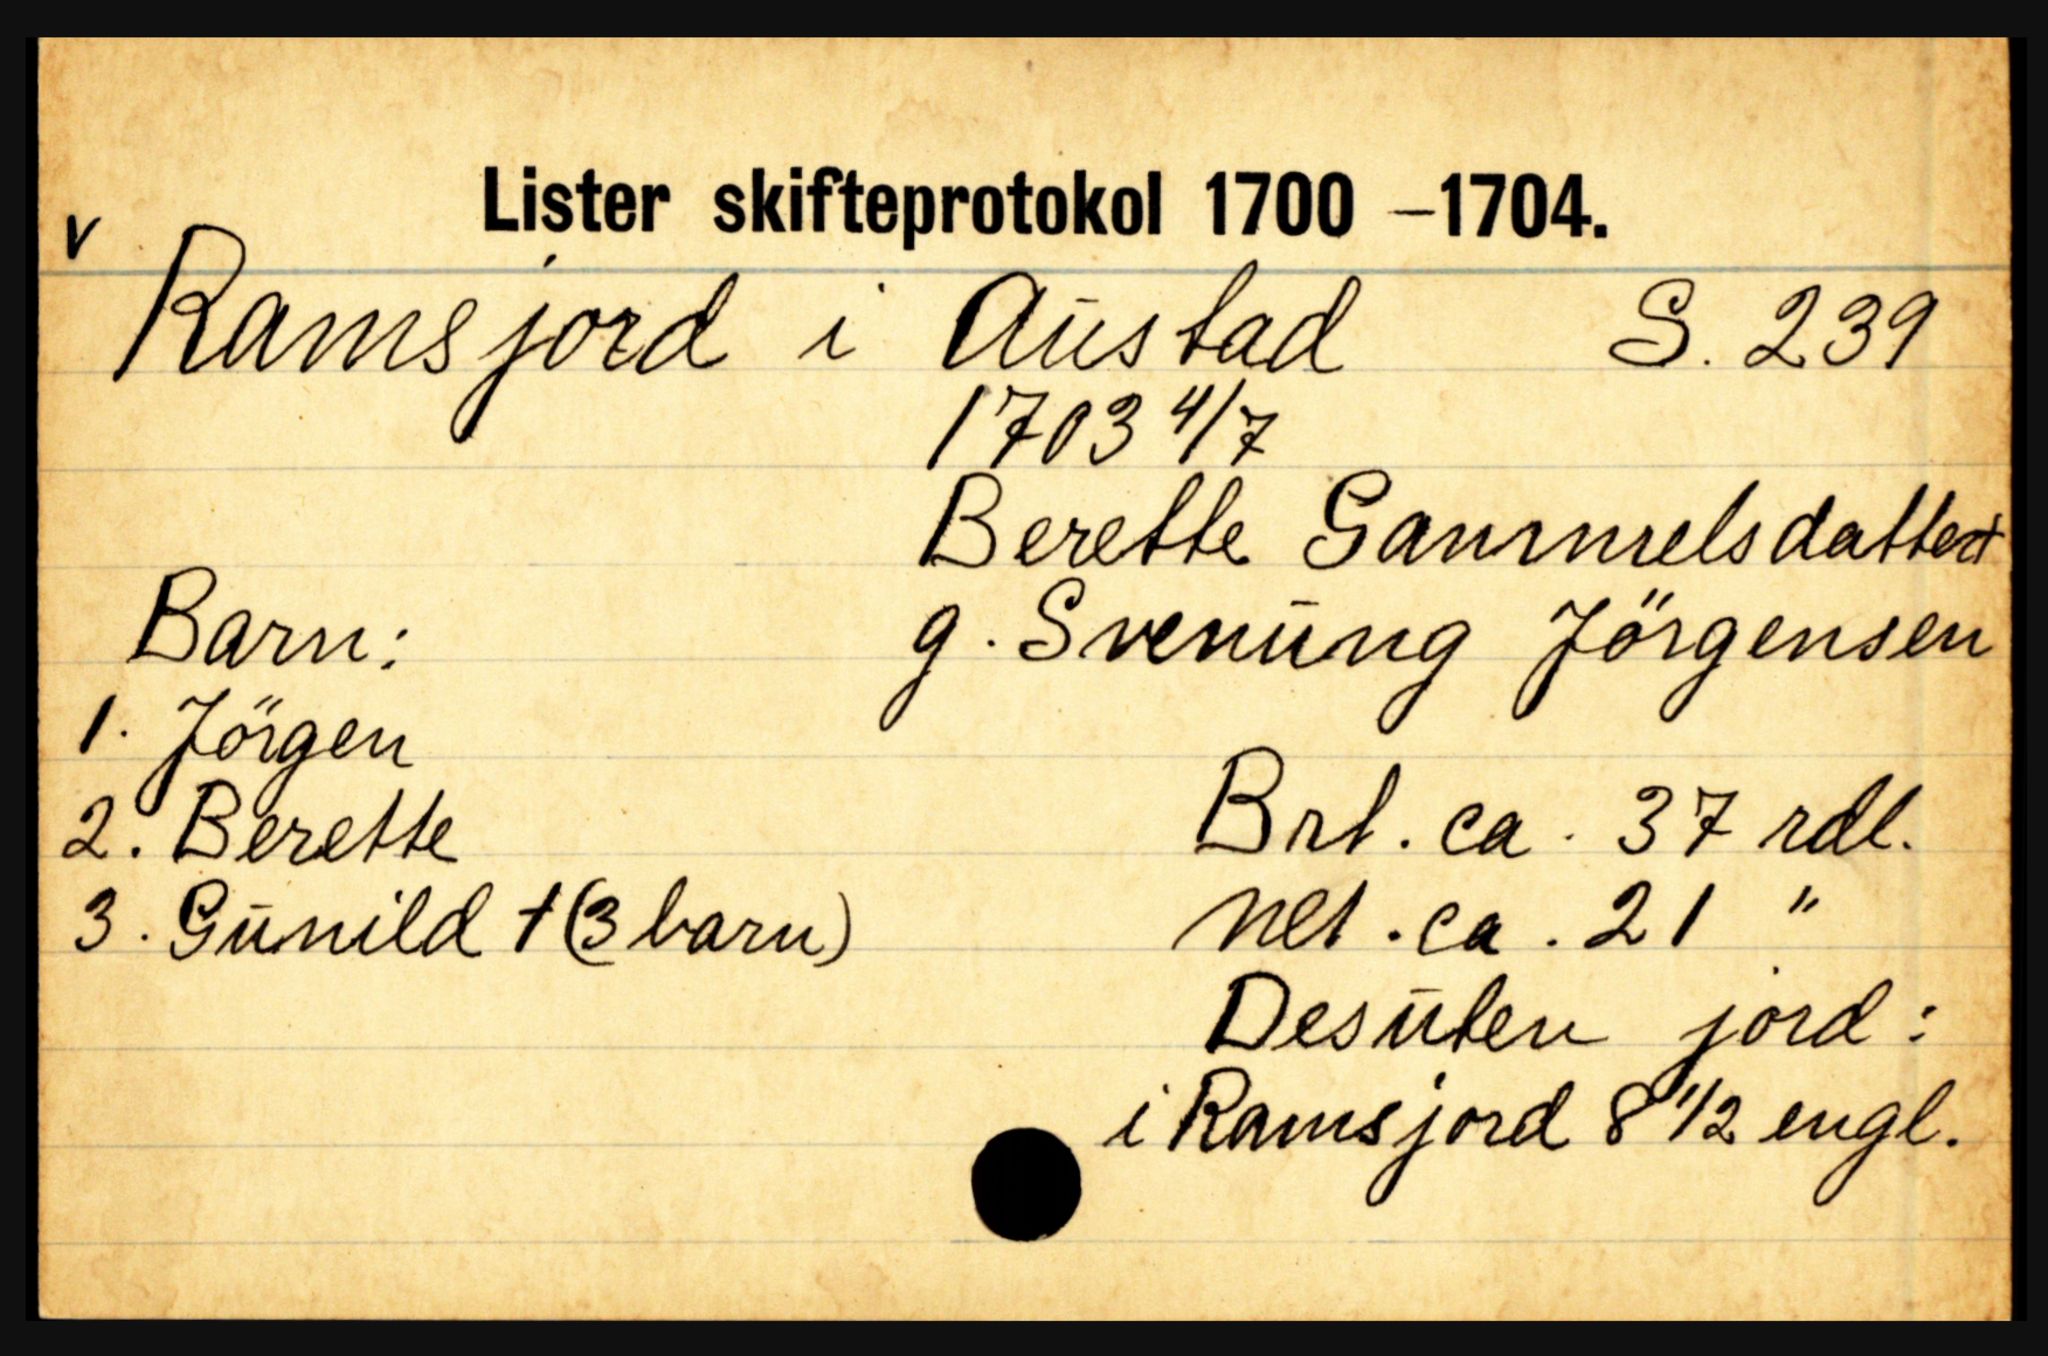 Lister skifteprotokol 1700 –1704.
v
Ramsjord i Austad S. 239
1703 4/7
Berette Gammelsdatter†
g. Svenung Jörgensen
Barn:
1. Jörgen
2. Berette
3. Gunild †(3 barn)
Brt. ca. 37 rdl.
Net. ca. 21 "
Desuten jord:
i Ramsjord 8 1/2 engl.